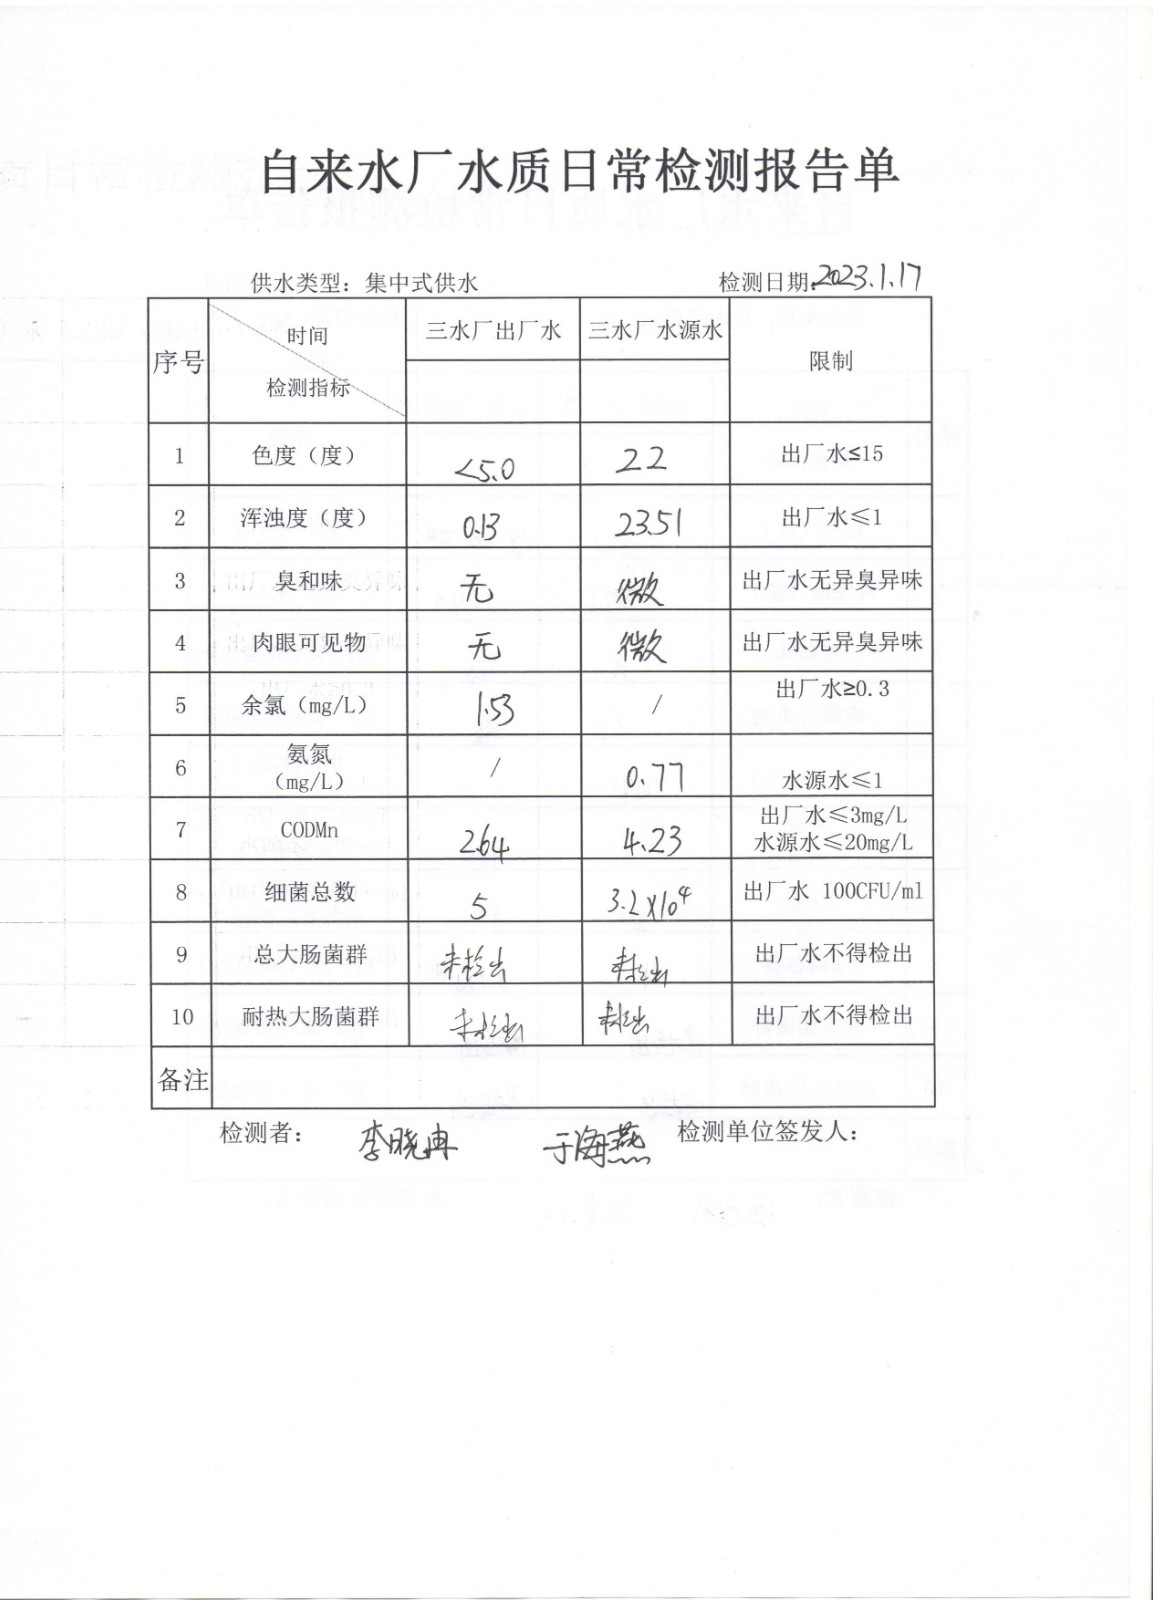 自来水厂水质日常检测报告单
供水类型：集中式供水 检测日期:2023.1.17
序号 时间 检测指标 三水厂出厂水 三水厂水源水 限制
1 色度（度） <5.0 22 出厂水≤15
2 浑浊度（度） 0.13 23.51 出厂水≤1
3 臭和味 无 微 出厂水无异臭异味
4 肉眼可见物 无 微 出厂水无异臭异味
5 余氯（mg/L） 1.53 / 出厂水≥0.3
6 氨氮（mg/L） / 0.77 水源水≤1
7 CODMn 2.64 4.23 出厂水≤3mg/L 水源水≤20mg/L
8 细菌总数 5 3.2×10⁴ 出厂水 100CFU/ml
9 总大肠菌群 未检出 未检出 出厂水不得检出
10 耐热大肠菌群 未检出 未检出 出厂水不得检出
备注
检测者： 李晓冉 于海燕 检测单位签发人：